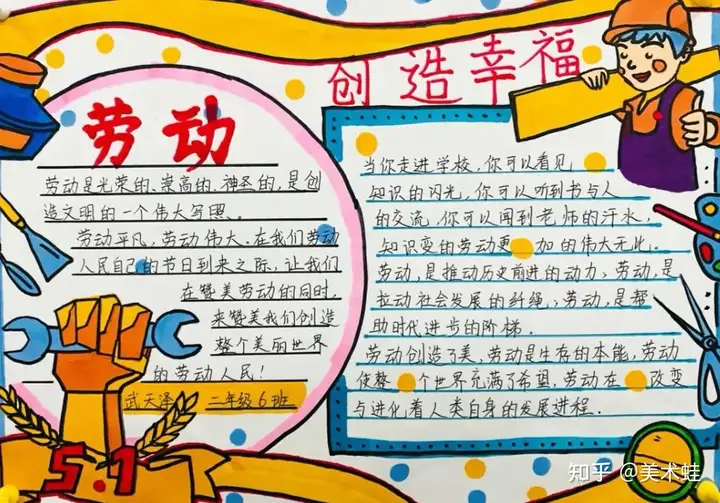 劳动
创造幸福
劳动是光荣的、崇高的、神圣的,是创
造文明的一个伟大写照、。
劳动平凡,劳动伟大.在我们劳动
人民自己的节日到来之际,让我们
在赞美劳动的同时,
来赞美我们创造
整个美丽世界
的劳动人民!
武天泽 二年级6班
5.1
当你走进学校,你可以看见
知识的闪光,你可以听到书与人
的交流,你可以闻到老师的汗水,
知识变的劳动更加的伟大无比.
劳动,是推动历史前进的动力、劳动,是
拉动社会发展的纤绳、劳动,是帮
助时代进步的阶梯.
劳动创造了美,劳动是生存的本能,劳动
使整个世界充满了希望,劳动在改变
与进化着人类自身的发展进程.
知乎 @美术蛙